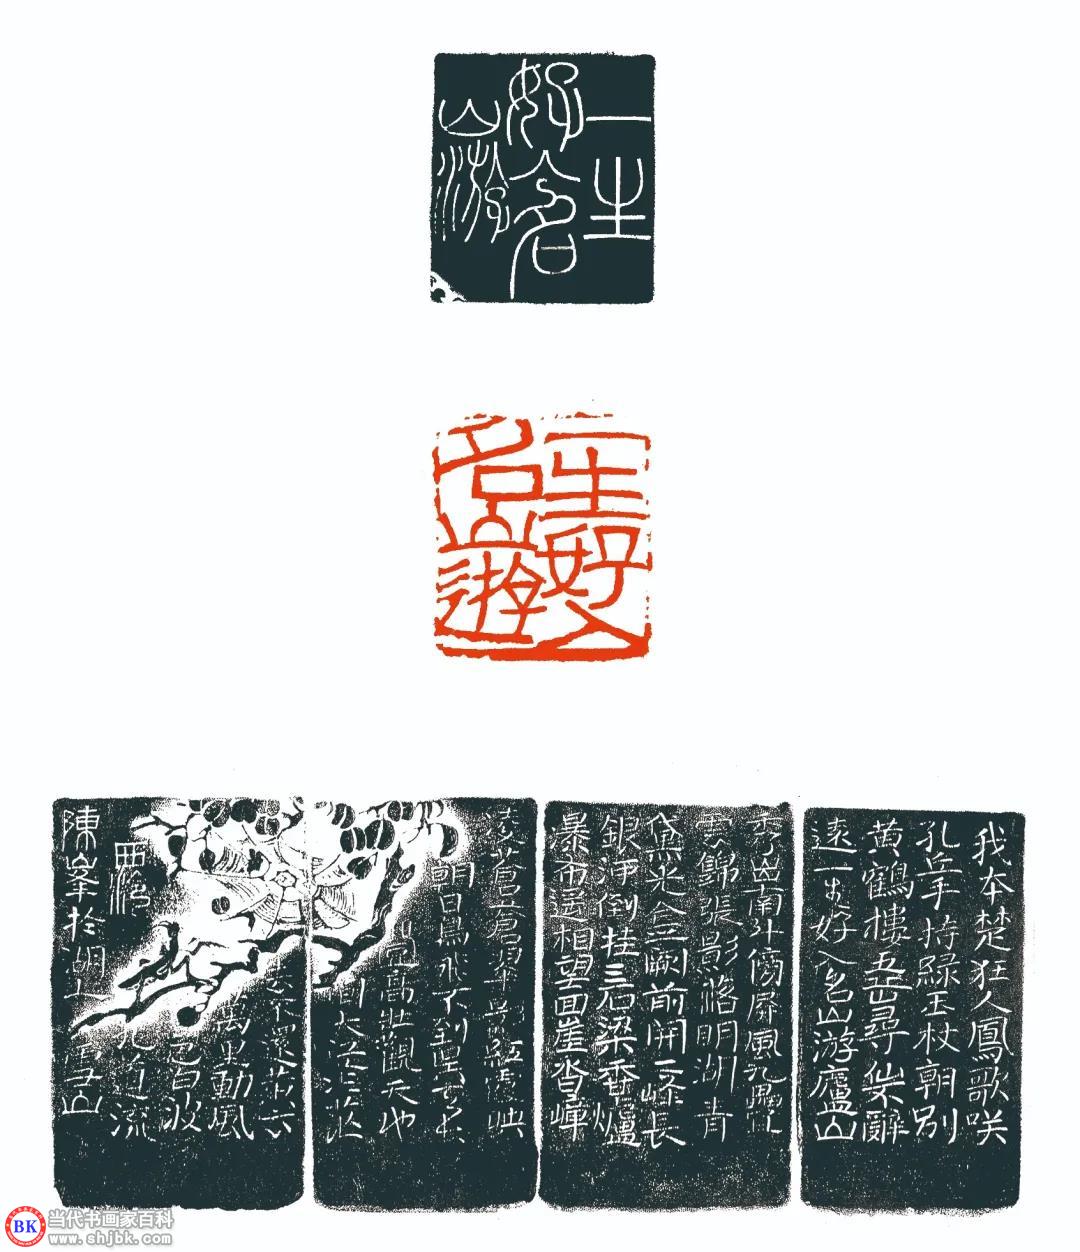 一生
好入名
山游
一生好入
名山遊
我本楚狂人鳳歌咲
孔丘手持綠玉杖朝別
黄鶴樓五岳尋仙不辭
遠一生好入名山游廬山
秀出南斗傍屏風九疊
雲錦張影落明湖青
黛光金闕前開二峰長
銀河倒挂三石梁香爐
瀑布遥相望回崖沓嶂
蒼蒼翠影紅霞映
朝日鳥飛不到吳天長
登高壯觀天地
間大江茫茫
去不還黄云
萬里動風
色白波
九道流
雪山
西泠
陳峯於湖上
BK 当代书画家百科
www.shjbk.com